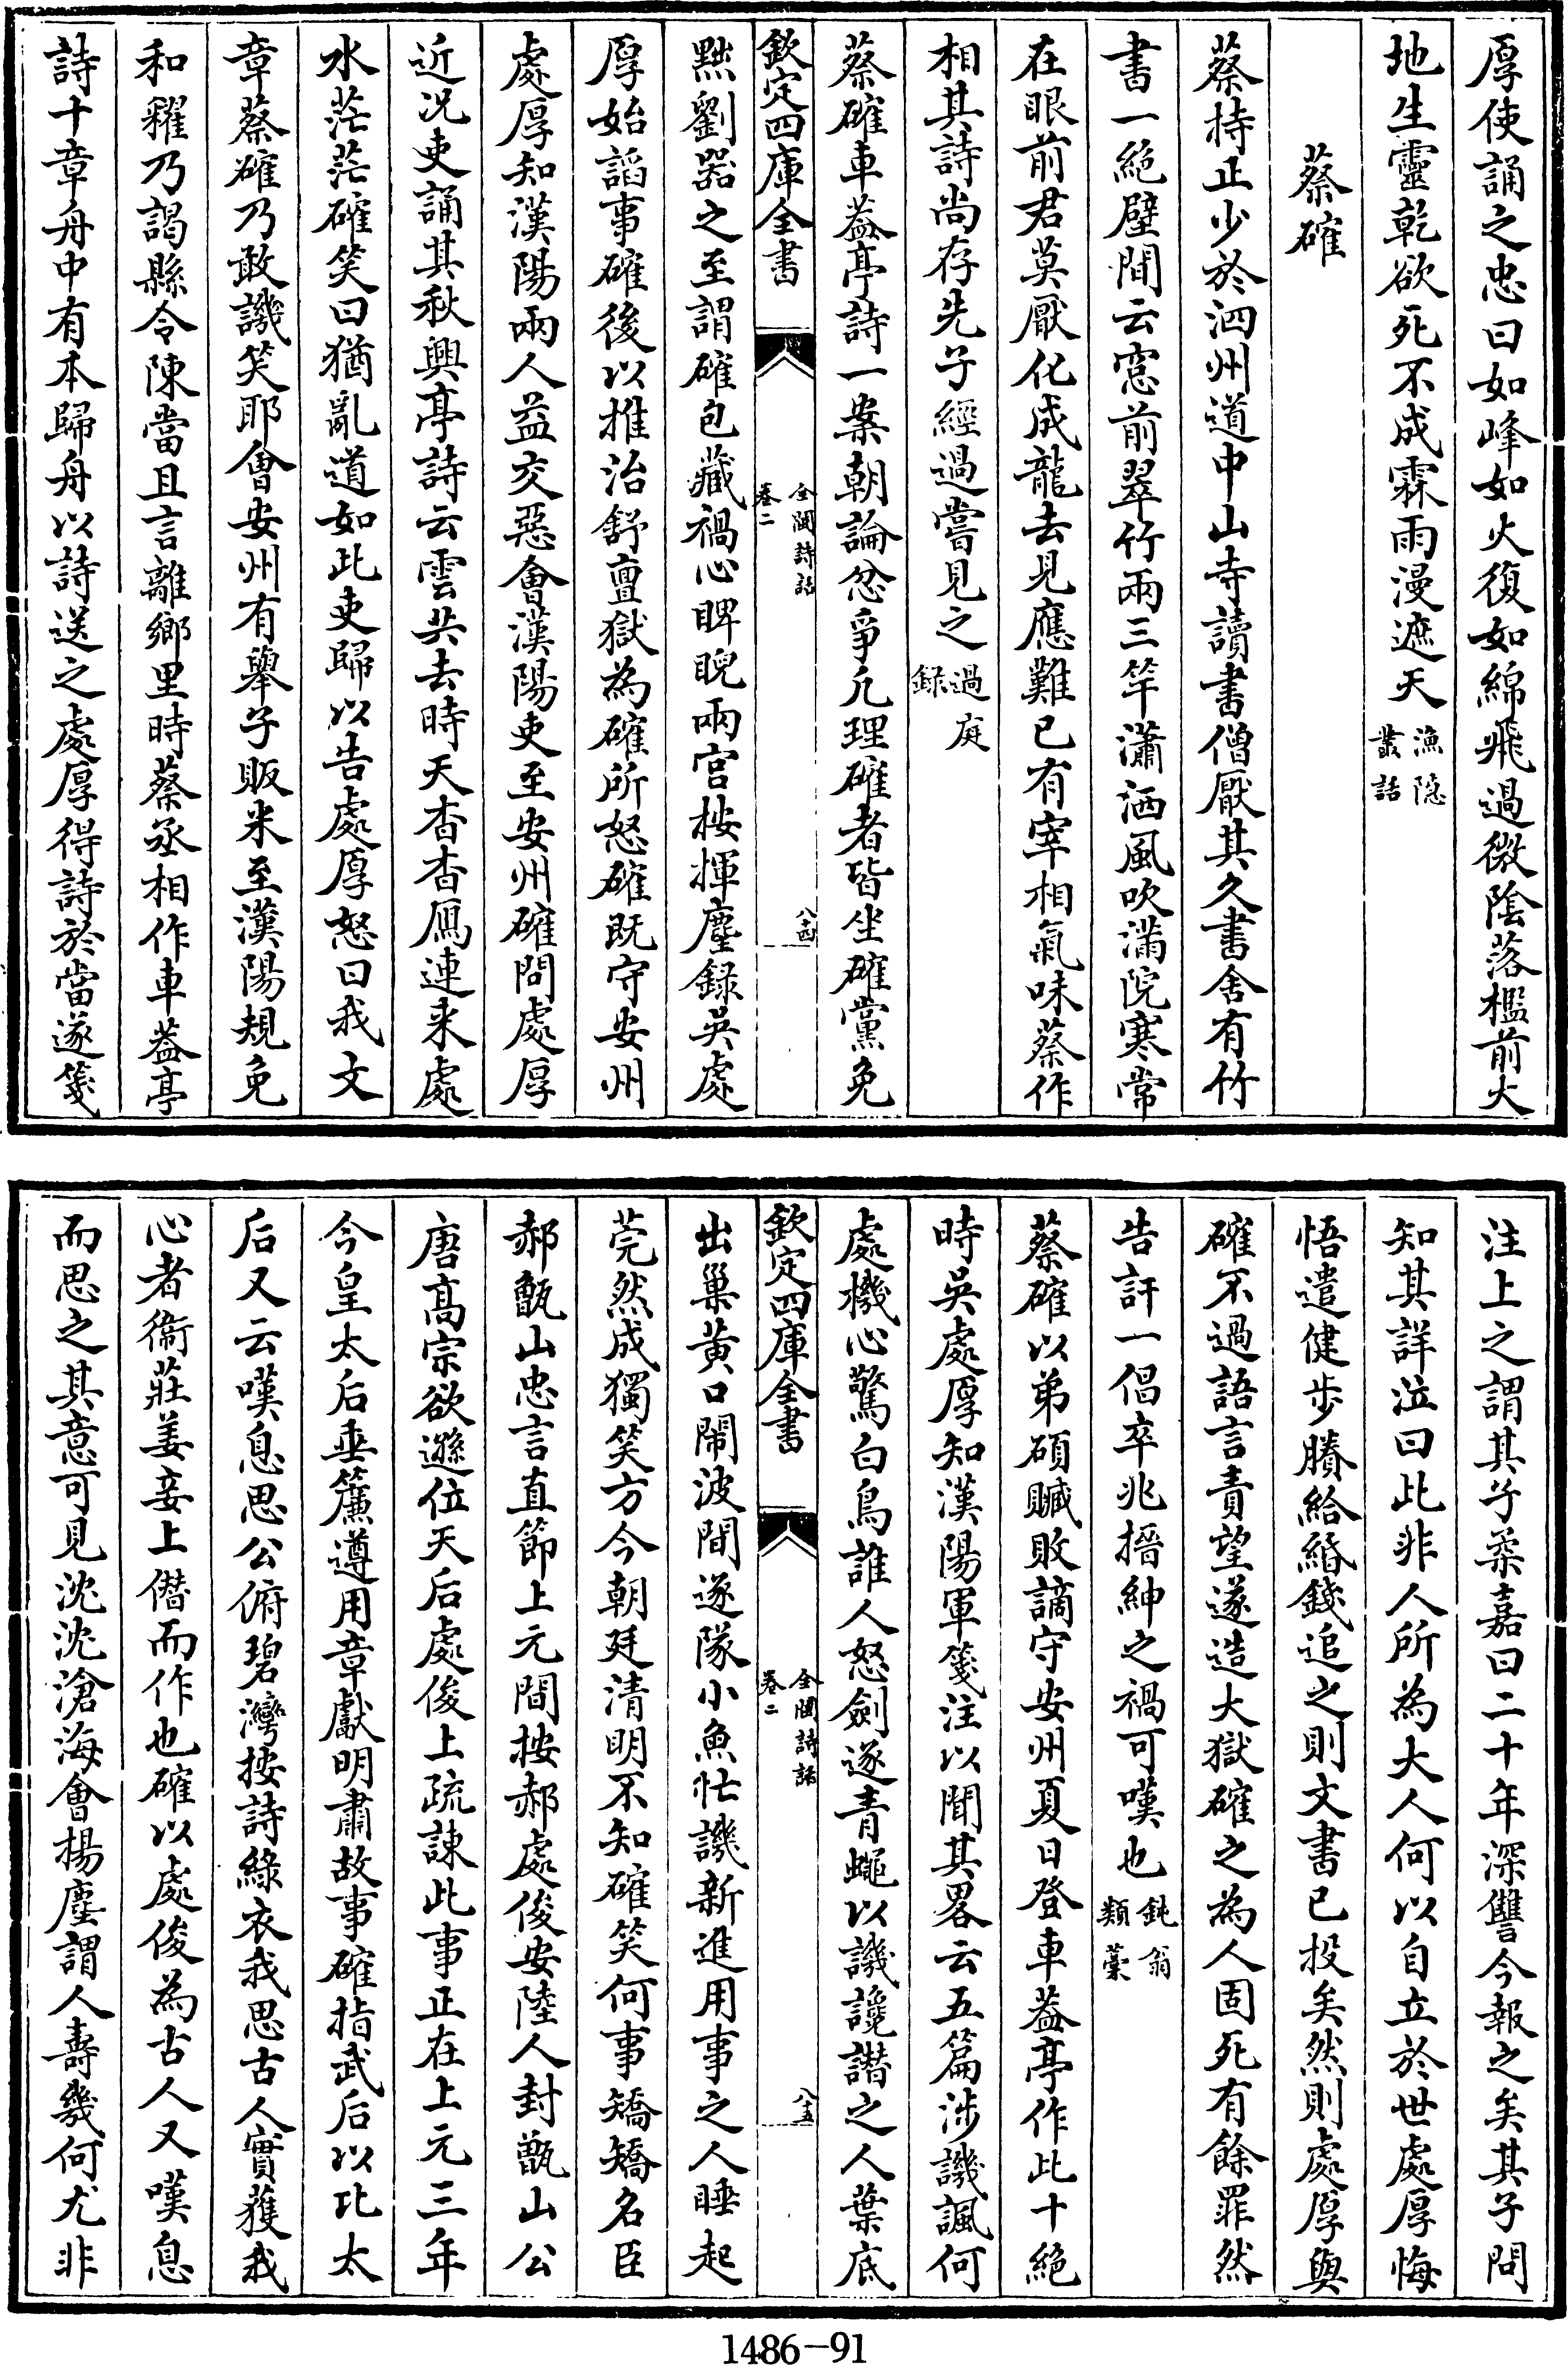 厚使誦之忠曰如峰如火復如綿飛過微陰落檻前大
地生靈乾欲死不成霖雨漫遮天漁隱叢話
蔡確
蔡持正少於泗州道中山寺讀書僧厭其久書舍有竹
書一絶壁間云窓前翠竹兩三竿瀟洒風吹滿院寒常
在眼前君莫厭化成龍去見應難已有宰相氣味蔡作
相其詩尚存先子經過嘗見之過庭録
蔡確車葢亭詩一案朝論忿爭凡理確者皆坐確黨免
欽定四庫全書
全閩詩話
卷二
八十四
黜劉器之至謂確包藏禍心睥睨兩宫按揮麈録吳處
厚始謟事確後以推治舒亶獄為確所怒確既守安州
處厚知漢陽兩人益交惡會漢陽吏至安州確問處厚
近况吏誦其秋興亭詩云雲共去時天杳杳鴈連来處
水茫茫確笑曰猶亂道如此吏歸以告處厚怒曰我文
章蔡確乃敢譏笑耶會安州有舉子販米至漢陽規免
和糴乃謁縣令陳當且言離鄉里時蔡丞相作車葢亭
詩十章舟中有本歸舟以詩送之處厚得詩於當遂箋
注上之謂其子柔嘉曰二十年深讐今報之矣其子問
知其詳泣曰此非人所為大人何以自立於世處厚悔
悟遣健步賸給緡錢追之則文書已投矣然則處厚與
確不過語言責望遂造大獄確之為人固死有餘罪然
告訐一倡卒兆搢紳之禍可嘆也鈍翁類藁
蔡確以弟碩贓敗謫守安州夏日登車葢亭作此十絶
時吳處厚知漢陽軍箋注以聞其畧云五篇涉譏諷何
處機心驚白鳥誰人怒劍逐青蠅以譏讒譖之人葉底
欽定四庫全書
全閩詩話
卷二
八十五
出巢黄口閙波間逐隊小魚忙譏新進用事之人睡起
莞然成獨笑方今朝廷清明不知確笑何事矯矯名臣
郝甑山忠言直節上元間按郝處俊安陸人封甑山公
唐髙宗欲遜位天后處俊上疏諫此事正在上元三年
今皇太后垂簾遵用章獻明肅故事確指武后以比太
后又云嘆息思公俯碧灣按詩緑衣我思古人實獲我
心者衞莊姜妾上僭而作也確以處俊為古人又嘆息
而思之其意可見沈沈滄海會揚塵謂人壽幾何尤非
1486-91